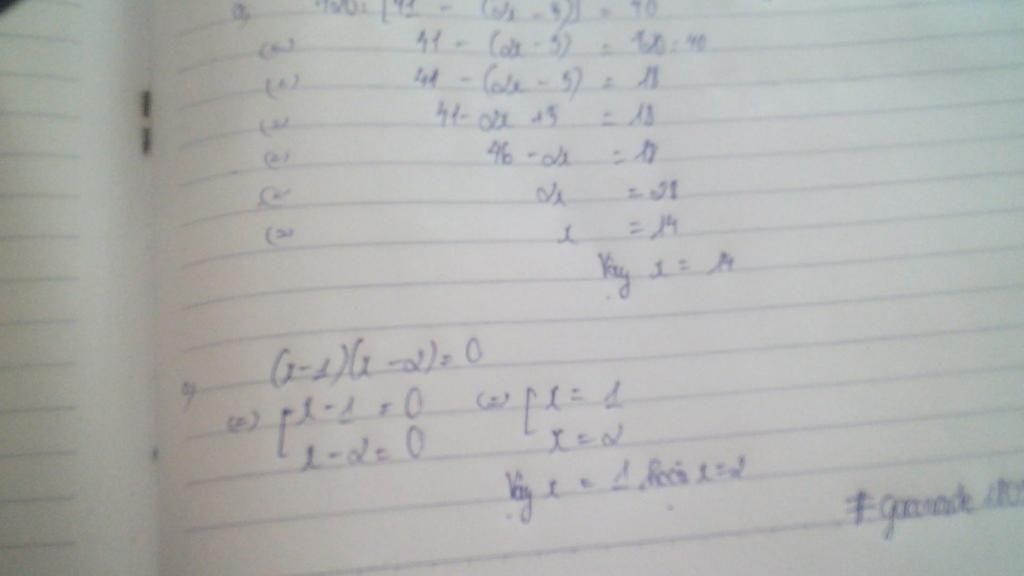 720 : [41 - (2x - 5)] = 40
(=) 41 - (2x - 5) = 720 : 40
(=) 41 - (2x - 5) = 18
(=) 41 - 2x + 5 = 18
(=) 46 - 2x = 18
(=) 2x = 28
(=) x = 14
Vậy x = 14
(x-1)(x-2)=0
(=) [ x-1 = 0 (=) [ x = 1
x-2 = 0 x = 2
Vậy x = 1 hoặc x=2